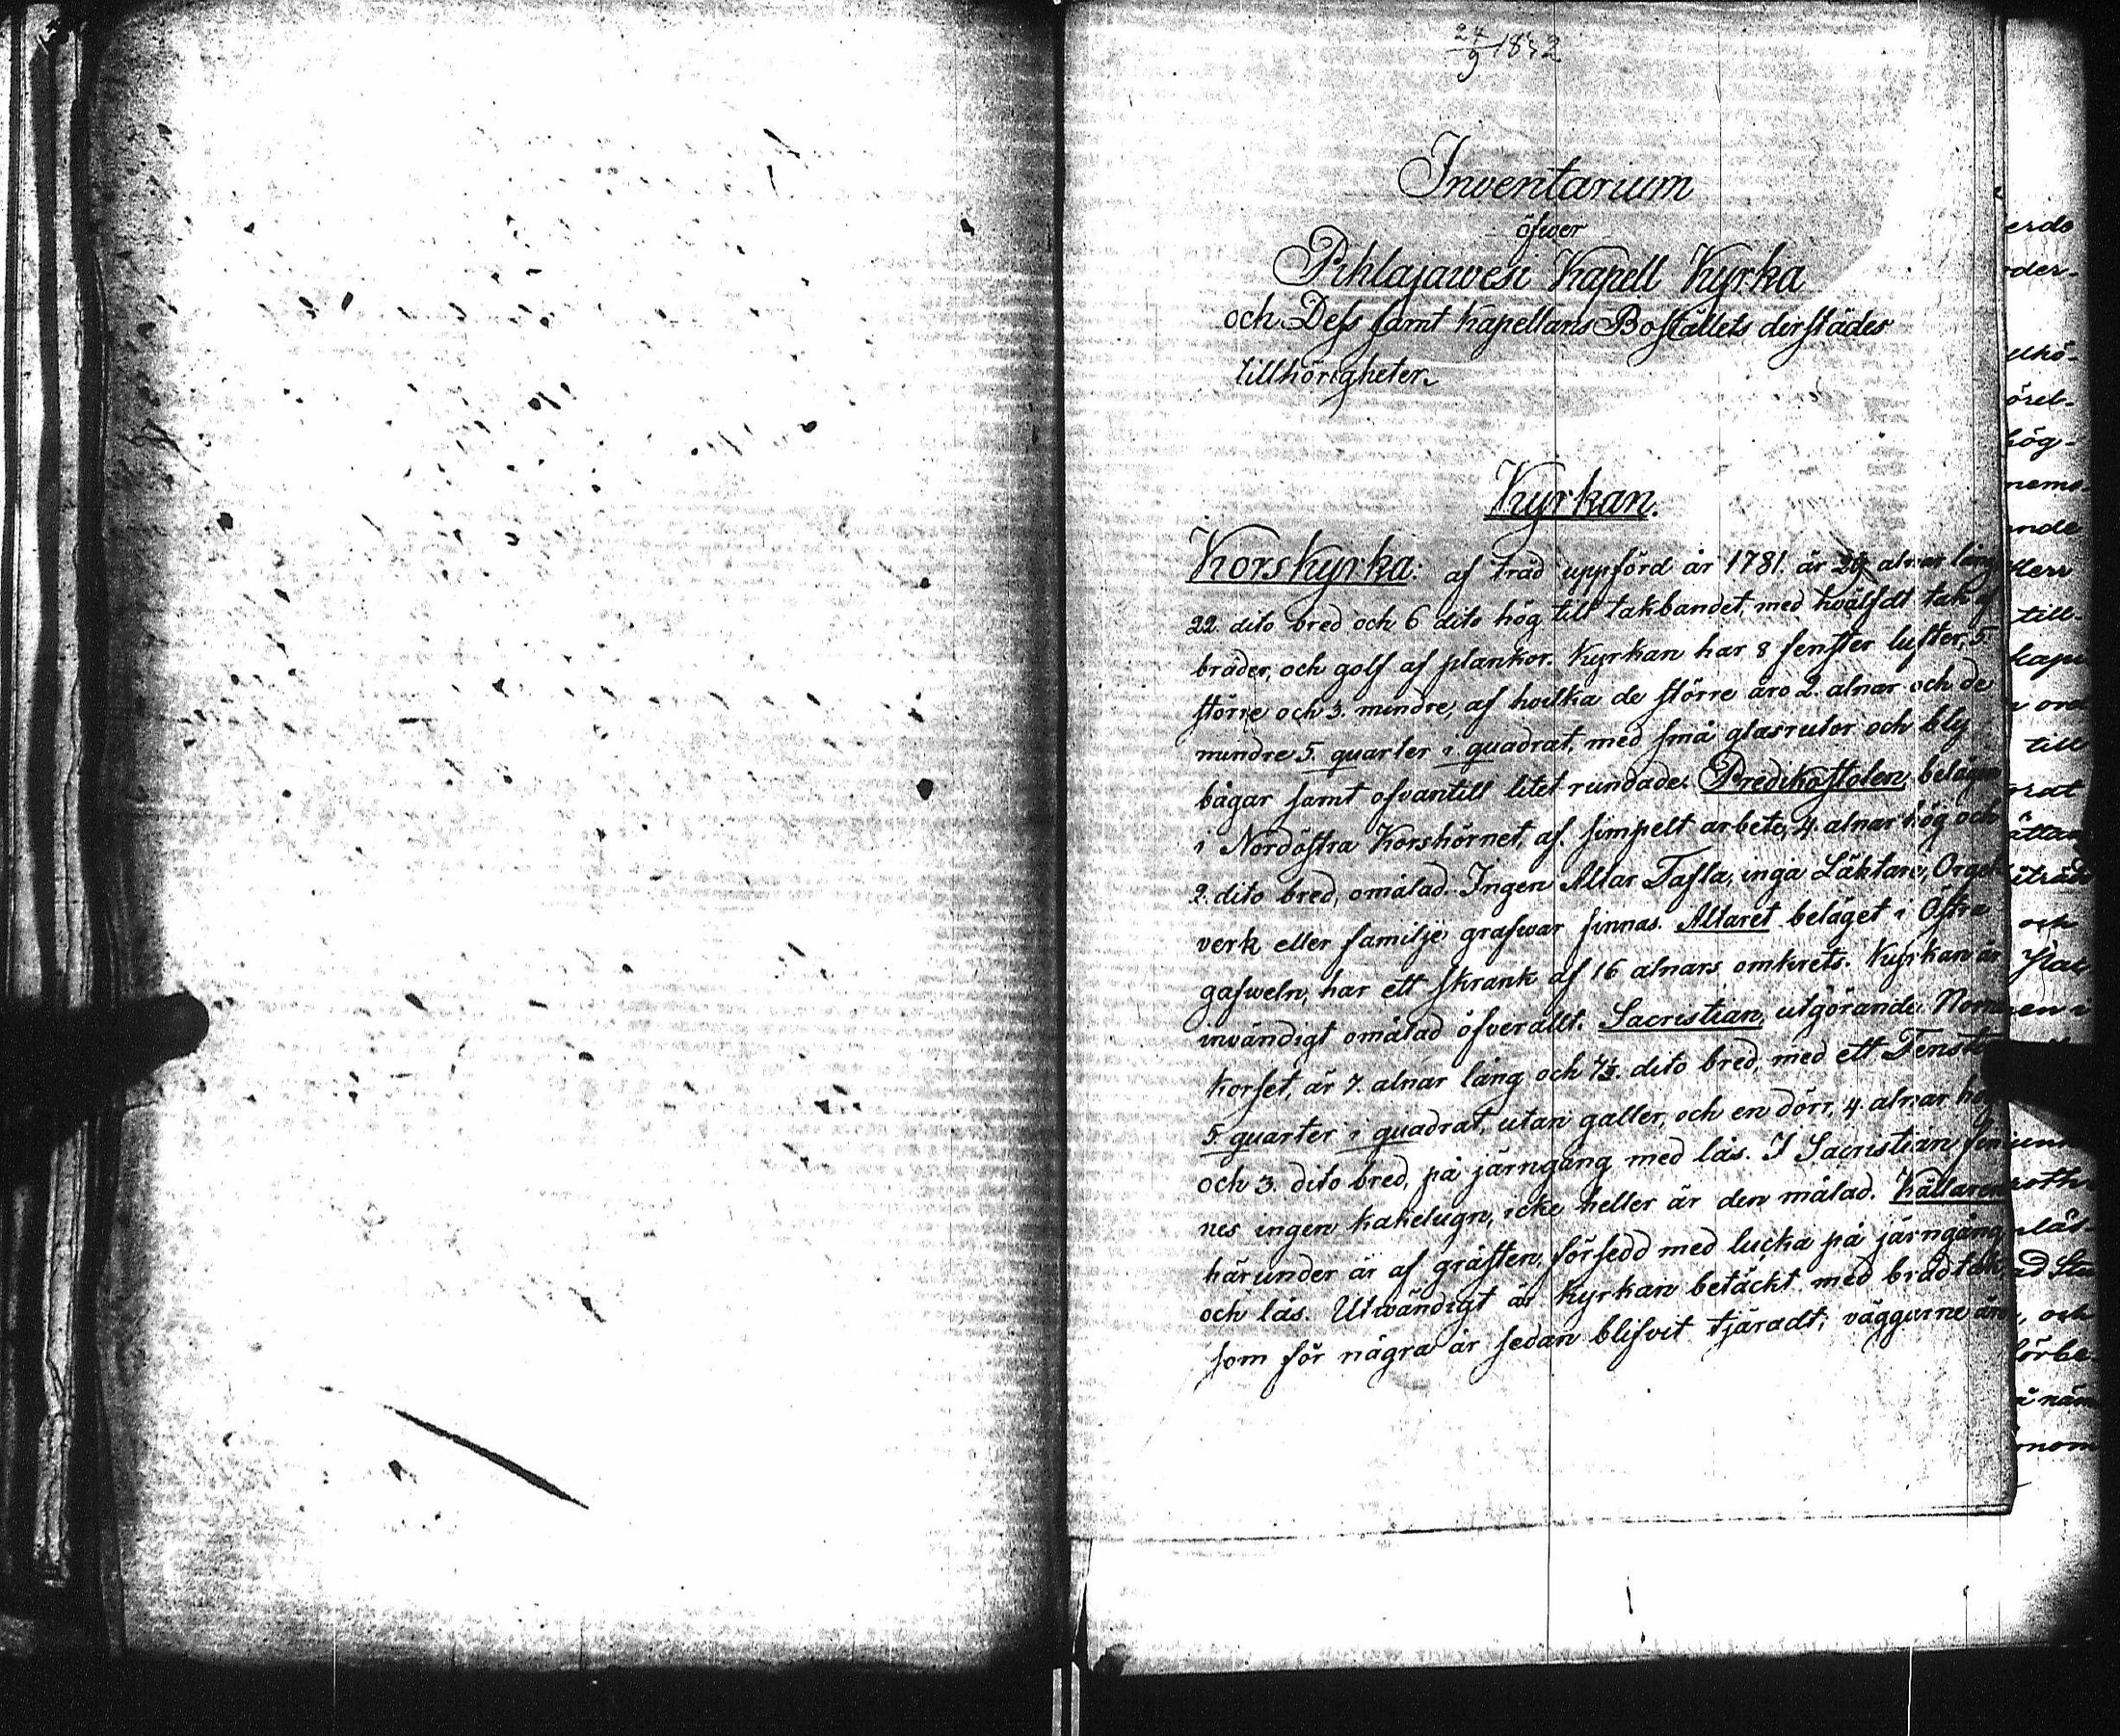 24/9 1832
Inventarium
öfwer
Pihlajawesi Kapell Kyrka
och Dess samt Kapellans Boställets derstädes
tillhörigheter.
Kyrkan.
Korskyrka: af träd uppförd år 1781. är alnar lång
22. dito bred och 6 dito hög till takbandet, med hvälfdt tak af
bräder, och golf af plankor. Kyrkan har 8 fenster lufter, 5
större och 3. mindre, af hvilka de större äro 2. alnar och de
mindre 5. quarter i quadrat, med små glasrutor och bly
bågar samt ofvantill litet rundade. Predikostolen, belägen
i Nordöstra Korshörnet, af simpelt arbete, 4. alnar hög och
2. dito bred, omålad. Ingen Altar Tafla, inga Läktare, Orgel
verk eller familje grafwar finnas. Altaret beläget i Östra
gafweln, har ett skrank af 16 alnars omkrets. Kyrkan är
invändigt omålad öfverallt. Sacristian, utgörande Norra
korset, är 7. alnar lång och 7½. dito bred, med ett Fenster
5. quarter i quadrat, utan galler, och en dörr, 4. alnar hög
och 3. dito bred, på järngång med lås. I Sacristian fin
nes ingen kakelugn, icke heller är den målad. Källaren
härunder är af gråsten, försedd med lucka på järngång
och lås. Utwändigt är Kyrkan betäckt med brädtak,
som för några år sedan blifvit tjäradt; väggarne äro
erdo
der-
elhö-
örel-
hög-
nems-
nde
Herr
till-
kape
ord
till
rat
och
en i
läs-
, och
förbe-